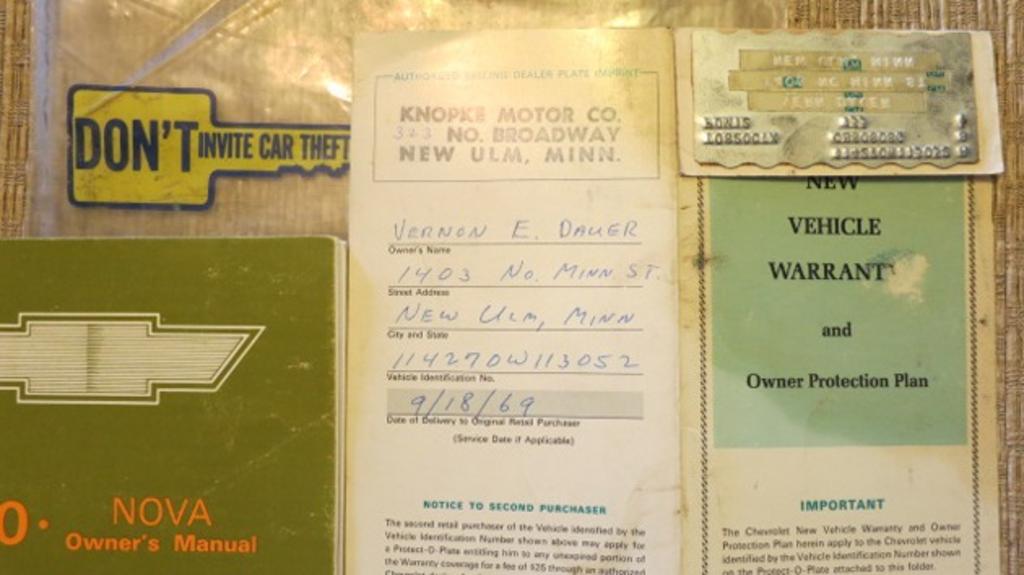 DON'T INVITE CAR THEFT
0. NOVA
Owner's Manual
AUTHORIZED SELLING DEALER PLATE IMPRINT
KNOPKE MOTOR CO.
323 NO. BROADWAY
NEW ULM, MINN.
VERNON E. DAUER
Owner's Name
1403 No. MINN ST.
Street Address
NEW ULM, MINN
City and State
114270W113052
Vehicle Identification No.
9/18/69
Date of Delivery to Original Retail Purchaser
(Service Date if Applicable)
NOTICE TO SECOND PURCHASER
The second retail purchaser of the Vehicle identified by the
Vehicle Identification Number shown above may apply for
a Protect-O-Plate entitling him to any unexpired portion of
the Warranty coverage for a fee of $25 through an authorized
NEW
VEHICLE
WARRANT
and
Owner Protection Plan
IMPORTANT
The Chevrolet New Vehicle Warranty and Owner
Protection Plan herein apply to the Chevrolet vehicle
identified by the Vehicle Identification Number shown
on the Protect-O-Plate attached to this folder.